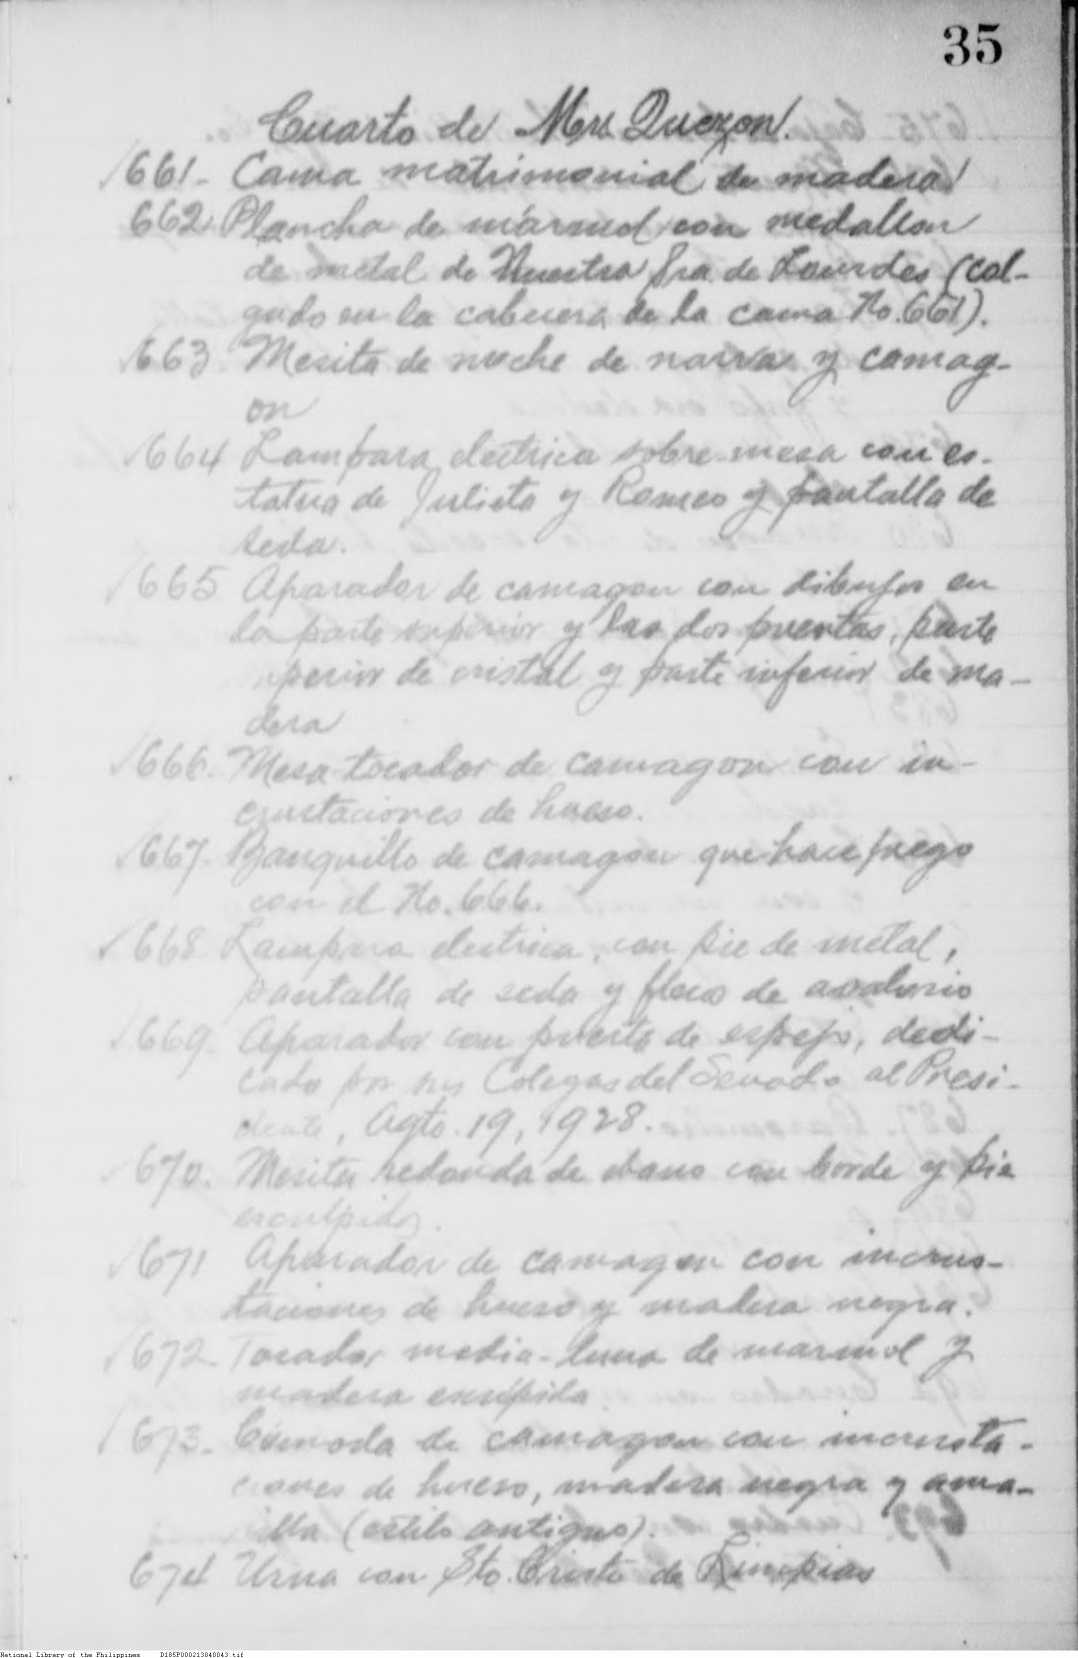 35
Cuarto de Mrs. Quezon.
661- Cama matrimonial de madera
662. Plancha de mármol con medallon
de metal de Nuestra Sra. de Lourdes (col-
gado en la cabecera de la cama No. 661).
663 Mesita de noche de narra y camag-
on
664 Lampara electrica sobre-mesa con es-
tatua de Julieta y Romeo y pantalla de
seda.
665 Aparador de camagon con dibujos en
la parte superior y las dos puertas, parte
superior de cristal y parte inferior de ma-
dera
666. Mesa tocador de camagon con in-
crustaciones de hueso.
667. Banquillo de camagon que hace juego
con el No. 666.
668 Lampara electrica, con pie de metal,
pantalla de seda y fleco de avalorio
669. Aparador con puerta de espejo, dedi-
cado por sus Colegas del Senado al Presi-
dente, Agto. 19, 1928.
670. Mesita redonda de ebano con borde y pie
esculpidos.
671 Aparador de camagon con incrus-
taciones de hueso y madera negra.
672- Tocador media-luna de marmol y
madera esculpida
673. Cómoda de camagon con incrusta-
ciones de hueso, madera negra y ama-
rilla (estilo antiguo).
674 Urna con Sto. Cristo de Limpias
National Library of the Philippines D185P000213040043.tif